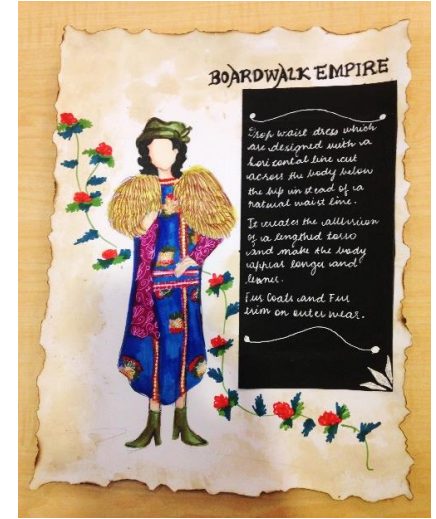 BOARDWALK EMPIRE
Drop waist dress which
are designed with a
horizontal line cut
across the body below
the hip instead of a
natural waist line.
It creates the allusion
of a lengthed torso
and make the body
appear longer and
leaner.
Fur Coats and Fur
trim on outer wear.